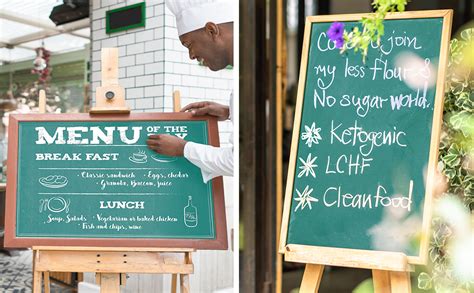 MENU OF THE
BREAK FAST
Classic sandwich • Eggs, chedar
• Granola, Bacoon, juice
LUNCH
Soup, Salads • Vegetarian or baked chicken
• Fish and chips, wine
Come join
my less flour &
No sugar world.
* Ketogenic
* LCHF
* Cleanfood